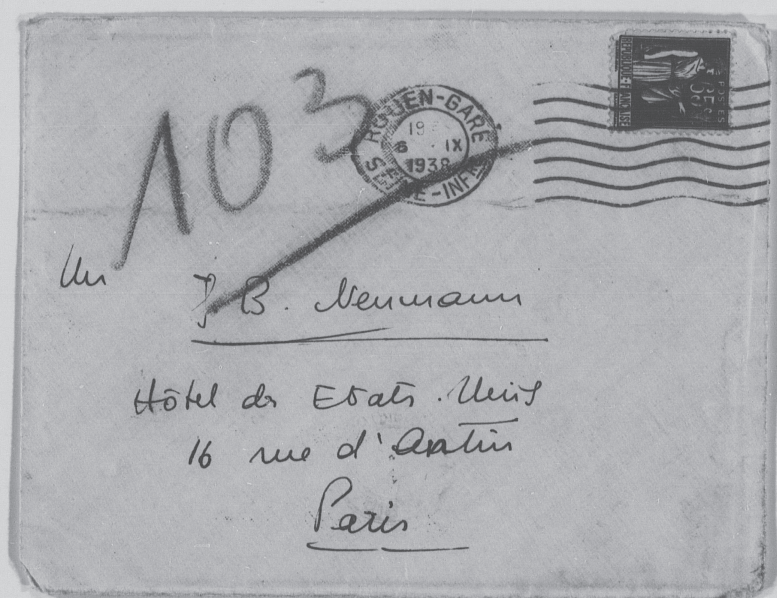 103
ROUEN-GARE
6 IX
1938
SEINE-INFRE
REPUBLIQUE FRANÇAISE
POSTES
J B. Neumann
Hôtel des Etats-Unis
16 rue d'Antin
Paris